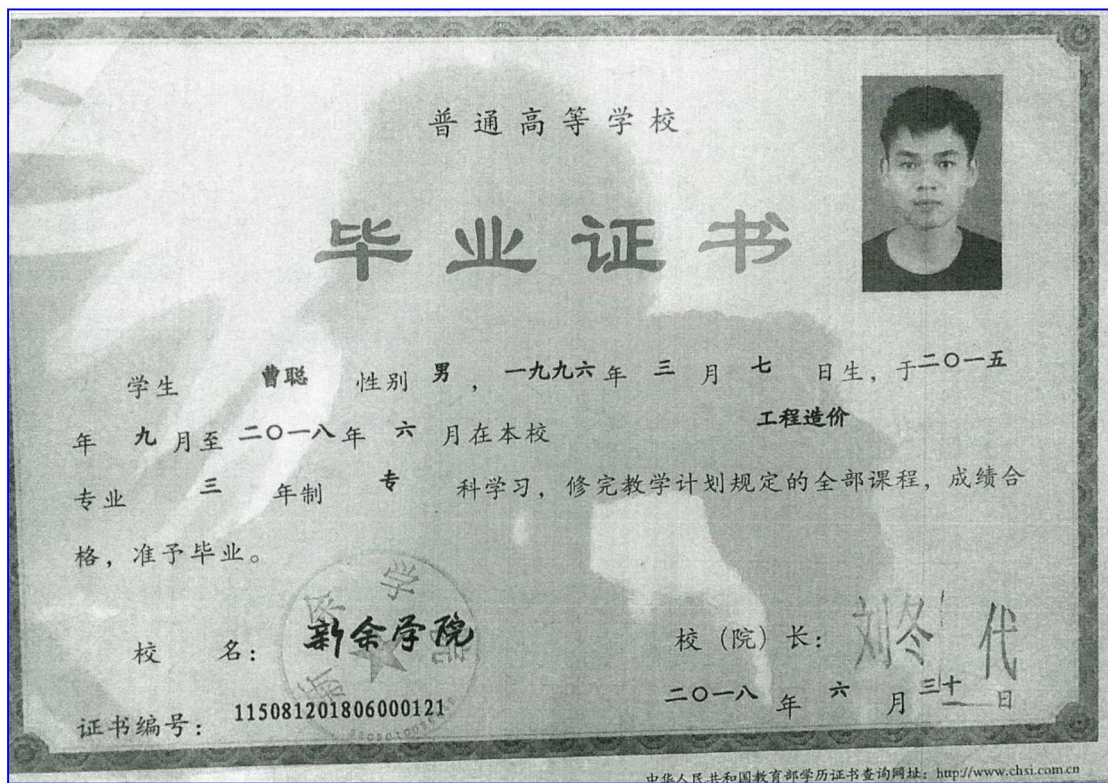 普通高等学校
毕业证书
学生 曹聪 性别 男 ，一九九六 年 三 月 七 日生，于二〇一五
年 九 月至 二〇一八 年 六 月在本校 工程造价
专业 三 年制 专 科学习，修完教学计划规定的全部课程，成绩合
格，准予毕业。
校 名： 新余学院 校（院）长： 刘冬代
二〇一八 年 六 月 三十 日
证书编号： 115081201806000121
中华人民共和国教育部学历证书查询网址：http://www.chsi.com.cn